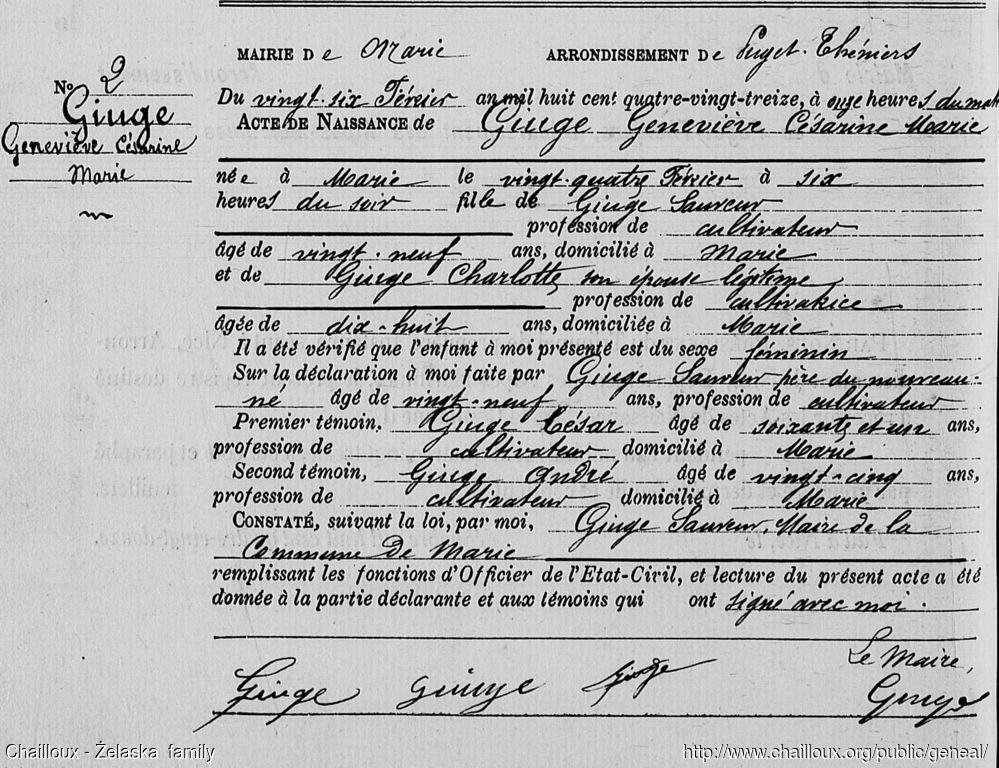 MAIRIE De Marie ARRONDISSEMENT De Puget-Théniers
No 2
Giuge
Geneviève Césarine
Marie
Du vingt-six Février an mil huit cent quatre-vingt-treize, à onze heures du matin
ACTE DE NAISSANCE de Giuge Geneviève Césarine Marie
née à Marie le vingt-quatre Février à six
heures du soir fille de Giuge Sauveur
profession de cultivateur
âgé de vingt-neuf ans, domicilié à Marie
et de Giuge Charlotte, son épouse légitime,
profession de cultivatrice
âgée de dix-huit ans, domiciliée à Marie
Il a été vérifié que l'enfant à moi présenté est du sexe féminin
Sur la déclaration à moi faite par Giuge Sauveur père du nouveau-
né âgé de vingt-neuf ans, profession de cultivateur
Premier témoin, Giuge César âgé de soixante et un ans,
profession de cultivateur domicilié à Marie
Second témoin, Giuge André âgé de vingt-cinq ans,
profession de cultivateur domicilié à Marie
CONSTATÉ, suivant la loi, par moi, Giuge Sauveur, Maire de la
Commune de Marie
remplissant les fonctions d'Officier de l'Etat-Civil, et lecture du présent acte a été
donnée à la partie déclarante et aux témoins qui ont signé avec moi.
Le Maire,
Giuge Giuge Giuge Giuge
Chailloux - Želaska family http://www.chailloux.org/public/geneal/